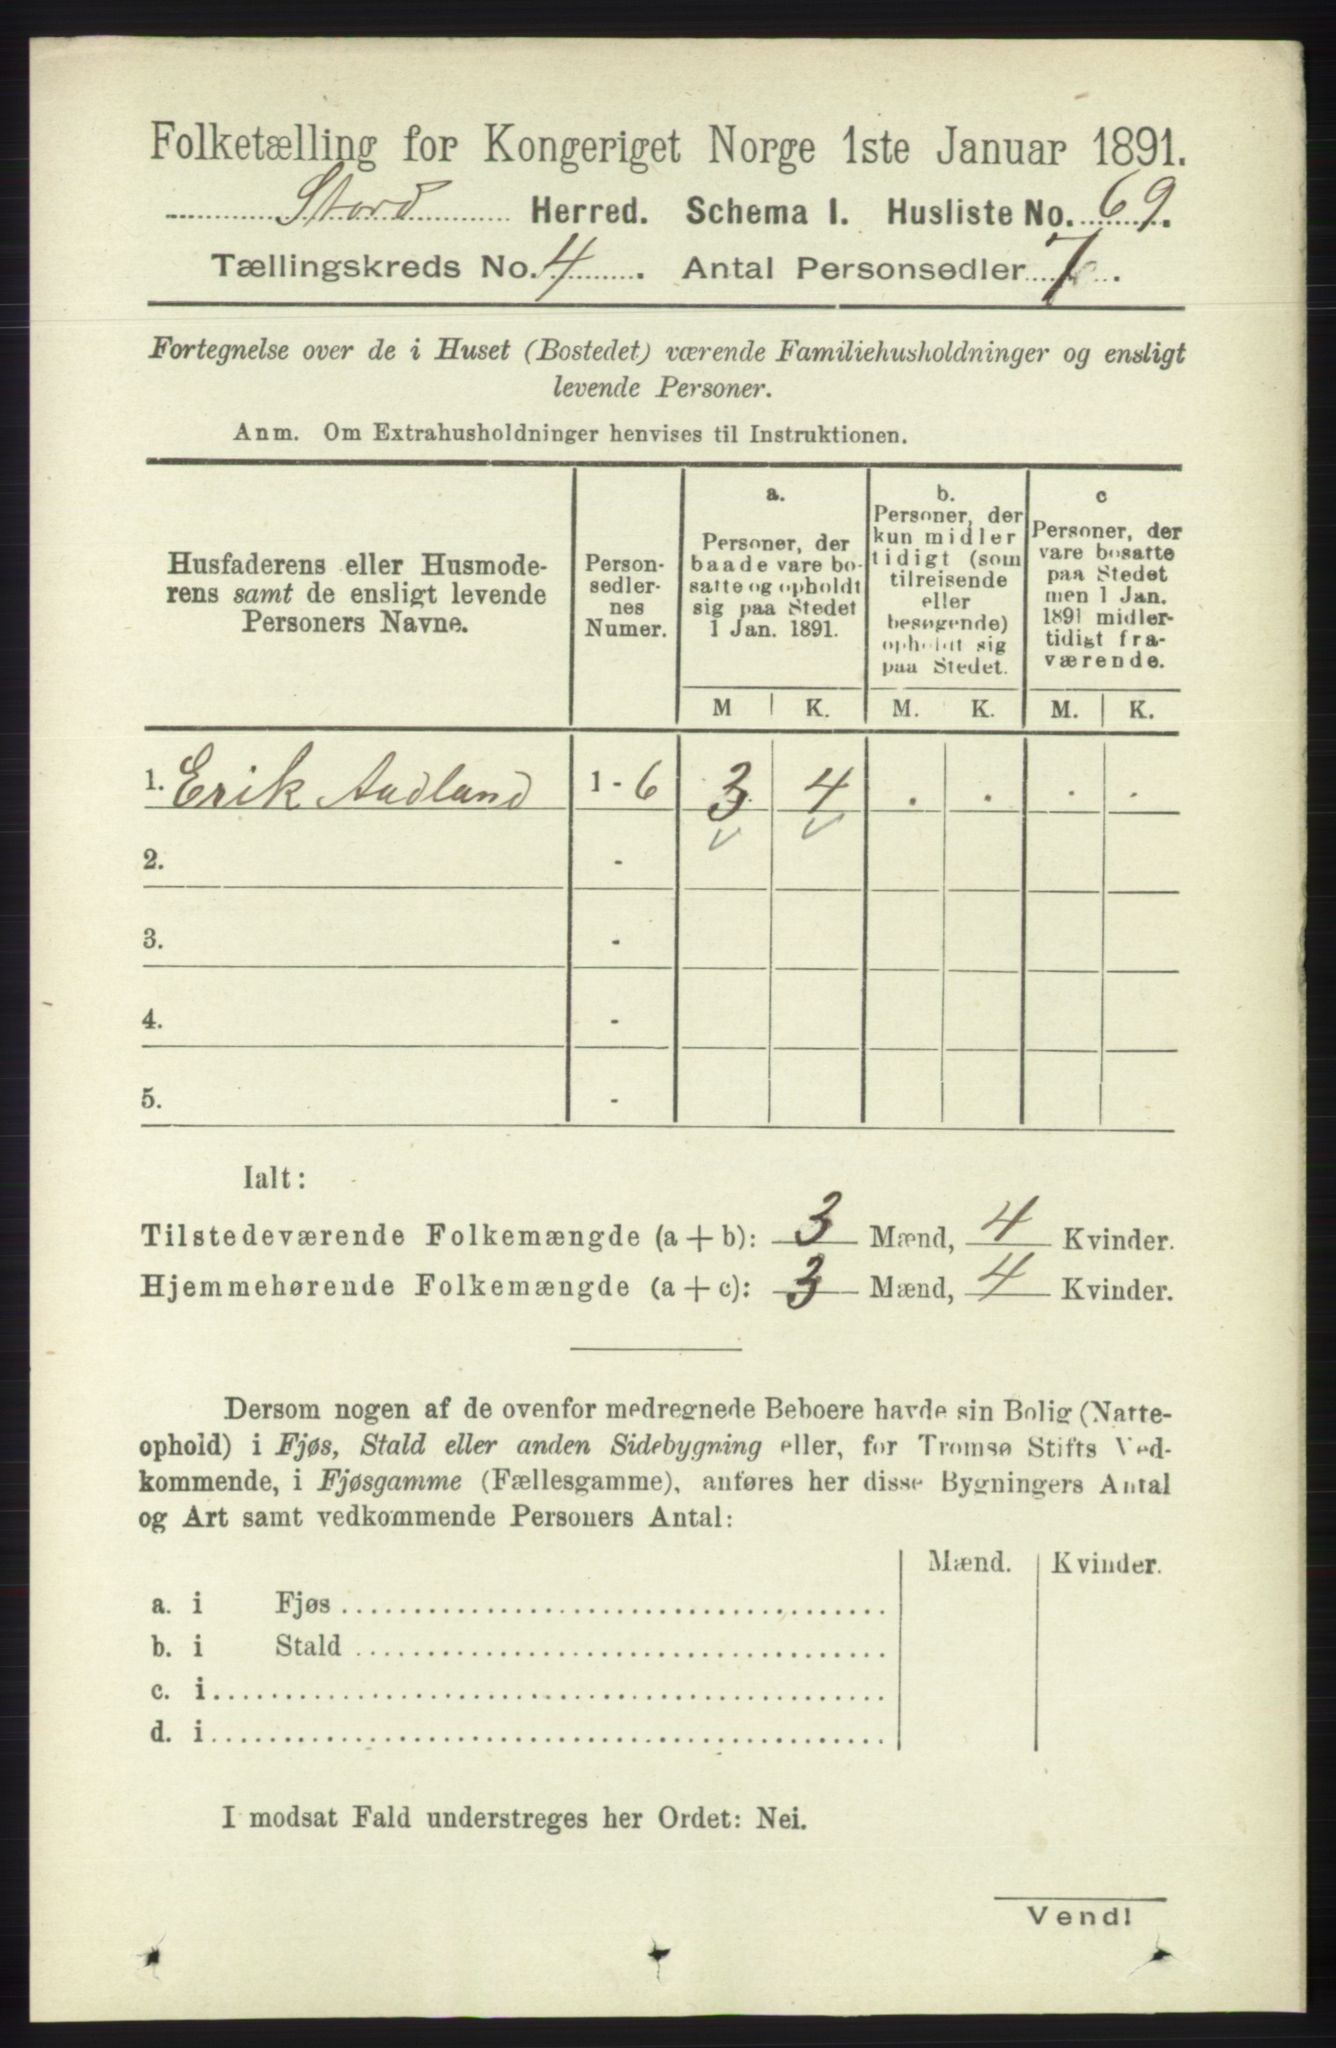 Folketælling for Kongeriget Norge 1ste Januar 1891.
Stord Herred. Schema I. Husliste No. 69.
Tællingskreds No. 4. Antal Personsedler 7.
Fortegnelse over de i Huset (Bostedet) værende Familiehusholdninger og ensligt
levende Personer.
Anm. Om Extrahusholdninger henvises til Instruktionen.
Husfaderens eller Husmode-
rens samt de ensligt levende
Personers Navne.
Person-
sedler-
nes
Numer.
a.
Personer, der
baade vare bo-
satte og opholdt
sig paa Stedet
1 Jan. 1891.
b.
Personer, der
kun midler
tidigt (som
tilreisende
eller
besøgende)
opholdt sig
paa Stedet.
c
Personer, der
vare bosatte
paa Stedet
men 1 Jan.
1891 midler-
tidigt fra-
værende.
M K. M. K. M. K.
1. Erik Aadland 1 - 6 3 4 . . . .
2. -
3. -
4. -
5. -
Ialt:
Tilstedeværende Folkemængde (a + b): 3 Mænd, 4 Kvinder.
Hjemmehørende Folkemængde (a + c): 3 Mænd, 4 Kvinder.
Dersom nogen af de ovenfor medregnede Beboere havde sin Bolig (Natte-
ophold) i Fjøs, Stald eller anden Sidebygning eller, for Tromsø Stifts Ved-
kommende, i Fjøsgamme (Fællesgamme), anføres her disse Bygningers Antal
og Art samt vedkommende Personers Antal:
Mænd. Kvinder.
a. i Fjøs
b. i Stald
c. i
d. i
I modsat Fald understreges her Ordet: Nei.
Vend!